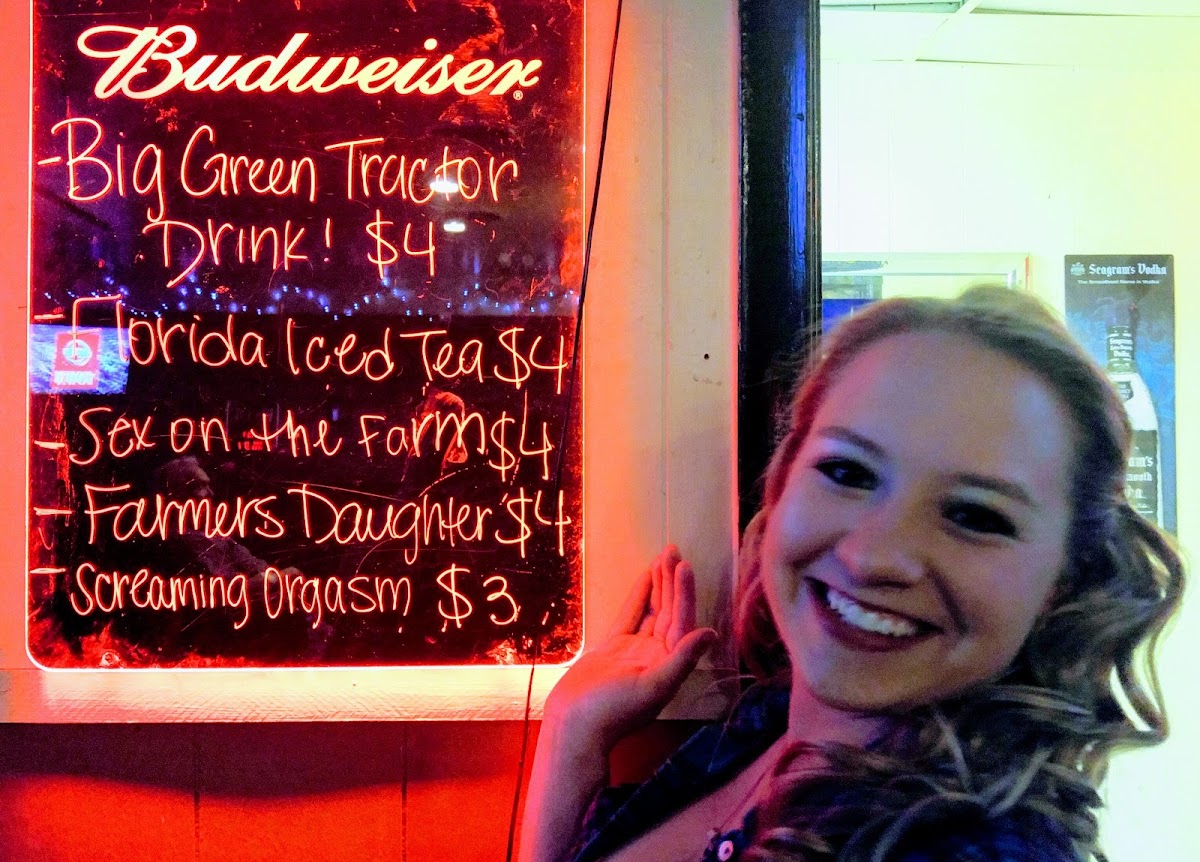 Budweiser®
- Big Green Tractor
Drink! $4
- Florida Iced Tea $4
- Sex on the Farm $4
- Farmers Daughter $4
- Screaming Orgasm $3
Seagram's Vodka